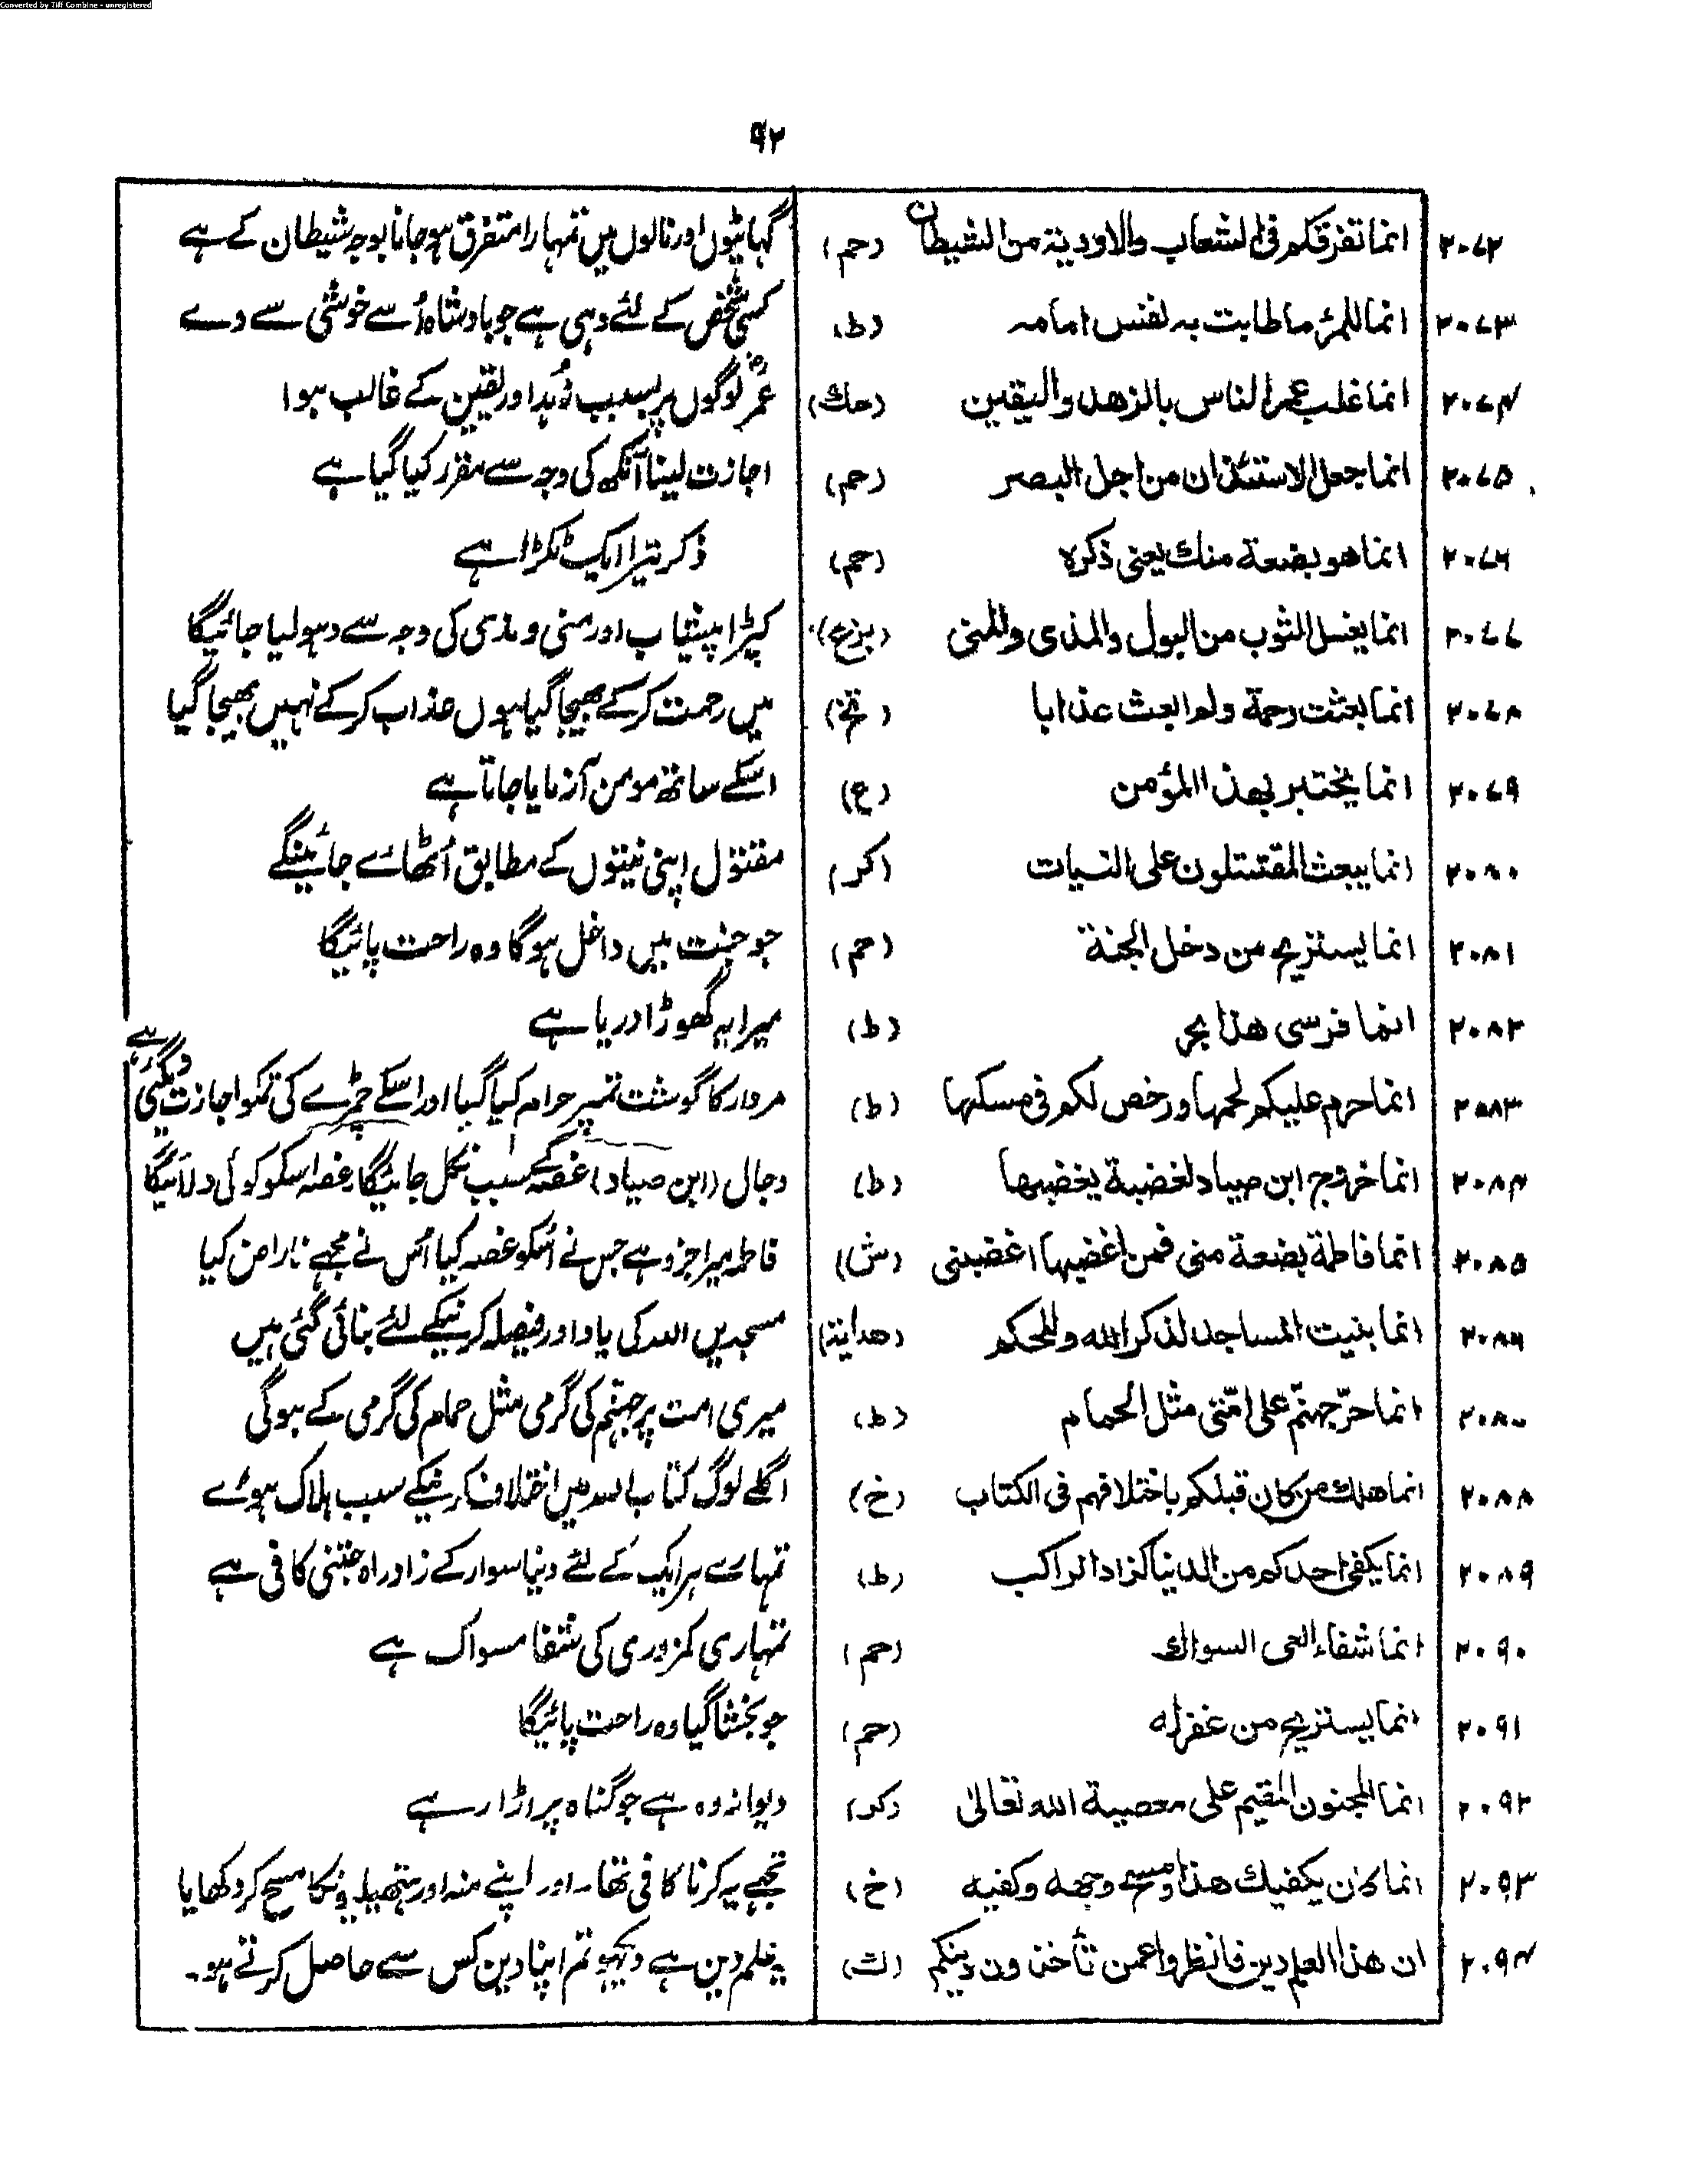 Converted by Tiff Combine - unregistered
۹۲
۲۰۷۲ انما تفرقکم فی الشعاب والاودیة من الشیطان (حم) گہاٹیوں اور نالوں میں تمہارا متفرق ہو جانا بوجہ شیطان کے ہے
۲۰۷۳ انما للمرٔ ما طابت بہ نفس امامہ (ط) کسی شخص کے لئے وہی ہے جو بادشاہ اُسے خوشی سے دے
۲۰۷۴ انما غلب عمر الناس بالزهد والیقین (حك) عمرؓ لوگوں پر بسبب زُہد اور یقین کے غالب ہوا
۲۰۷۵ انما جعل الاستئذان من اجل البصر (حم) اجازت لینا آنکھ کی وجہ سے مقرر کیا گیا ہے
۲۰۷۶ انما هو بضعة منك یعنی ذکره (حم) ذکر تیرا ایک ٹکڑا ہے
۲۰۷۷ انما یغسل الثوب من البول والمذی والمنی (بزع) کپڑا پیشاب اور منی و مذی کی وجہ سے دہولیا جائیگا
۲۰۷۸ انما بعثت رحمة ولم ابعث عذابا (تخ) میں رحمت کرکے بھیجا گیا ہوں عذاب کرکے نہیں بھیجا گیا
۲۰۷۹ انما یختبر بهذا المؤمن (ع) اسکے ساتھ مومن آزمایا جاتا ہے
۲۰۸۰ انما یبعث المقتتلون علی النیات (کر) مقتول اپنی نیتوں کے مطابق اُٹھائے جائینگے
۲۰۸۱ انما یستریح من دخل الجنة (حم) جو جنت میں داخل ہوگا وہ راحت پائیگا
۲۰۸۲ انما فرسی هذا بحر (ط) میرا یہ گھوڑا دریا ہے
۲۰۸۳ انما حرم علیکم لحمها ورخص لکم فی مسکها (ط) مردار کا گوشت تمپر حرام کیا گیا اور اسکے چمڑے کی تمکو اجازت دیگئی ہے
۲۰۸۴ انما خروج ابن صیاد لغضبة یغضبها (ط) دجال (ابن صیاد) غصہ کے سبب نکل جائیگا غصہ اسکو کوئی دلائیگا
۲۰۸۵ انما فاطمة بضعة منی فمن اغضبها اغضبنی (ش) فاطمہ میرا جزو ہے جس نے اُسکو غصہ کیا اُس نے مجھے ناراض کیا
۲۰۸۶ انما بنیت المساجد لذکر الله وللحکم (هدایة) مسجدیں اللہ کی یاد اور فیصلہ کرنیکے لئے بنائی گئی ہیں
۲۰۸۷ انما حرّ جهنّم علی امّتی مثل الحمام (ط) میری امت پر جہنّم کی گرمی مثل حمام کی گرمی کے ہوگی
۲۰۸۸ انما هلك من کان قبلکم باختلافهم فی الکتاب (خ) اگلے لوگ کتاب اللہ میں اختلاف کرنیکے سبب ہلاک ہوئے
۲۰۸۹ انما یکفی احدکم من الدنیا کزاد الراکب (ط) تمہارے ہر ایک کے لئے دنیا سوار کے زاد راہ جتنی کافی ہے
۲۰۹۰ انما شفاء العی السواك (حم) تمہاری کمزوری کی شفا مسواک ہے
۲۰۹۱ انما یستریح من غفر له (حم) جو بخشا گیا وہ راحت پائیگا
۲۰۹۲ انما المجنون المقیم علی معصیة الله تعالیٰ (کر) دیوانہ وہ ہے جو گناہ پر اڑا رہے
۲۰۹۳ انما کان یکفیك هذا ومسح وجهه وکفیه (خ) تجھے یہ کرنا کافی تھا۔ اور اپنے منہ اور ہتھیلیونکا مسح کر دکھایا
۲۰۹۴ ان هذا العلم دین فانظروا عمن تأخذون دینکم (ك) یہ علم دین ہے دیکھو تم اپنا دین کس سے حاصل کرتے ہو۔